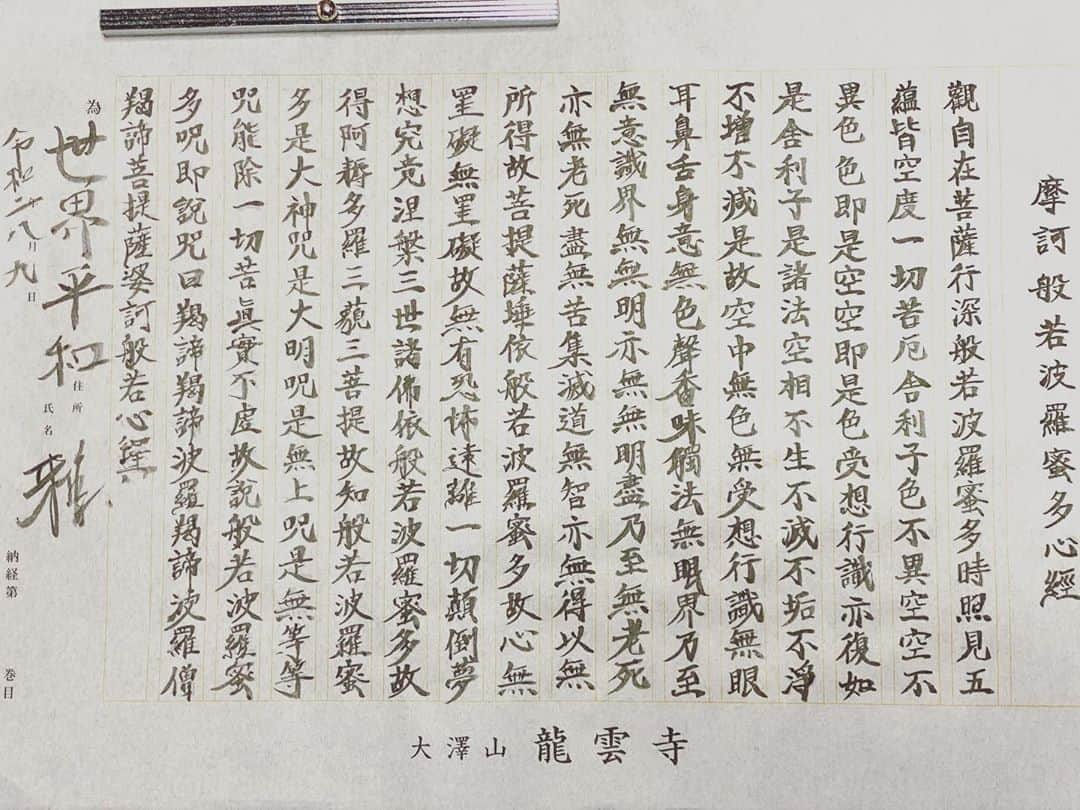 摩訶般若波羅蜜多心經
觀自在菩薩行深般若波羅蜜多時照見五
蘊皆空度一切苦厄舎利子色不異空空不
異色色即是空空即是色受想行識亦復如
是舎利子是諸法空相不生不滅不垢不淨
不增不減是故空中無色無受想行識無眼
耳鼻舌身意無色聲香味觸法無眼界乃至
無意識界無無明亦無無明盡乃至無老死
亦無老死盡無苦集滅道無智亦無得以無
所得故菩提薩埵依般若波羅蜜多故心無
罣礙無罣礙故無有恐怖遠離一切顛倒夢
想究竟涅槃三世諸佛依般若波羅蜜多故
得阿耨多羅三藐三菩提故知般若波羅蜜
多是大神咒是大明咒是無上咒是無等等
咒能除一切苦眞實不虛故說般若波羅蜜
多咒即說咒曰羯諦羯諦波羅羯諦波羅僧
羯諦菩提薩婆訶般若心經
為 世界平和
令和二八月九日
住所
氏名
納経第 巻目
大澤山 龍雲寺